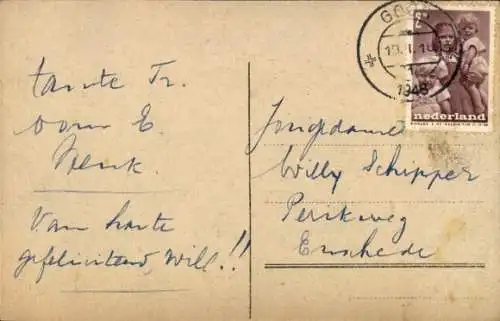 tante Tr.
oom E
Henk
Van harte
gefeliciteerd, Will.!!
GOOR
1948
nederland
Jongedame
Willy Schipper
Perikweg
Enschede